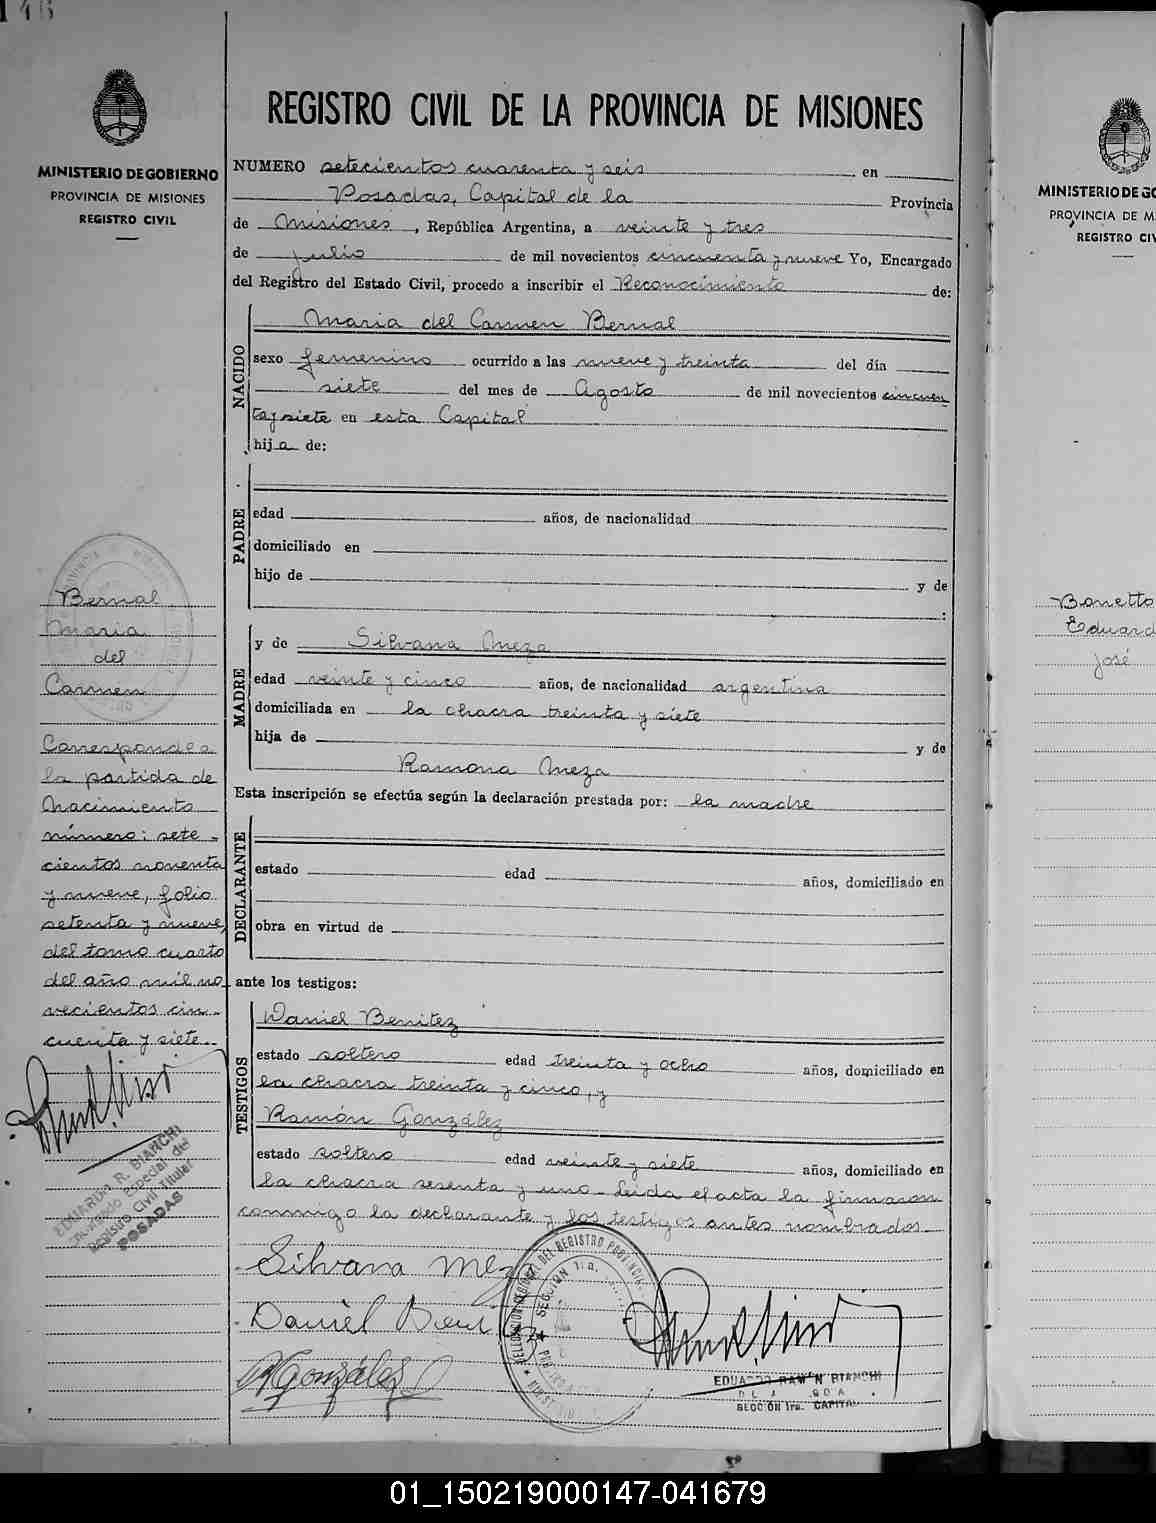 MINISTERIO DE GOBIERNO
PROVINCIA DE MISIONES
REGISTRO CIVIL
Bernal
Maria
del
Carmen
Corresponde a
la partida de
Nacimiento
número: sete-
cientos noventa
y nueve, folio
setenta y nueve,
del tomo cuarto
del año mil no-
vecientos cin-
cuenta y siete.-
EDUARDO R. BIANCHI
Encargado Especial del
Registro Civil Titular
POSADAS
REGISTRO CIVIL DE LA PROVINCIA DE MISIONES
NUMERO setecientos cuarenta y seis en
Posadas, Capital de la Provincia
de Misiones, República Argentina, a veinte y tres
de julio de mil novecientos cincuenta y nueve Yo, Encargado
del Registro del Estado Civil, procedo a inscribir el Reconocimiento de:
NACIDO
Maria del Carmen Bernal
sexo femenino ocurrido a las nueve y treinta del día
siete del mes de Agosto de mil novecientos cincuen
ta y siete en esta Capital
hija de:
PADRE
edad años, de nacionalidad
domiciliado en
hijo de y de
:
MADRE
y de Silvana Meza
edad veinte y cinco años, de nacionalidad argentina
domiciliada en la chacra treinta y siete
hija de y de
Ramona Meza
Esta inscripción se efectúa según la declaración prestada por: la madre
DECLARANTE
estado edad años, domiciliado en
obra en virtud de
ante los testigos:
TESTIGOS
Daniel Benitez
estado soltero edad treinta y ocho años, domiciliado en
la chacra treinta y cinco, y
Ramón González
estado soltero edad veinte y siete años, domiciliado en
la chacra sesenta y uno - Leida el acta la firmaron
conmigo la declarante y los testigos antes nombrados.
Silvana Meza
Daniel Benitez
R González
DEL REGISTRO PROVINCIAL
SECCION 1ra.
EDUARDO RAMON BIANCHI
SECCION 1ra. CAPITAL
MINISTERIO DE GO
PROVINCIA DE M
REGISTRO CIV
Bonetto
Eduard
José
01_150219000147-041679